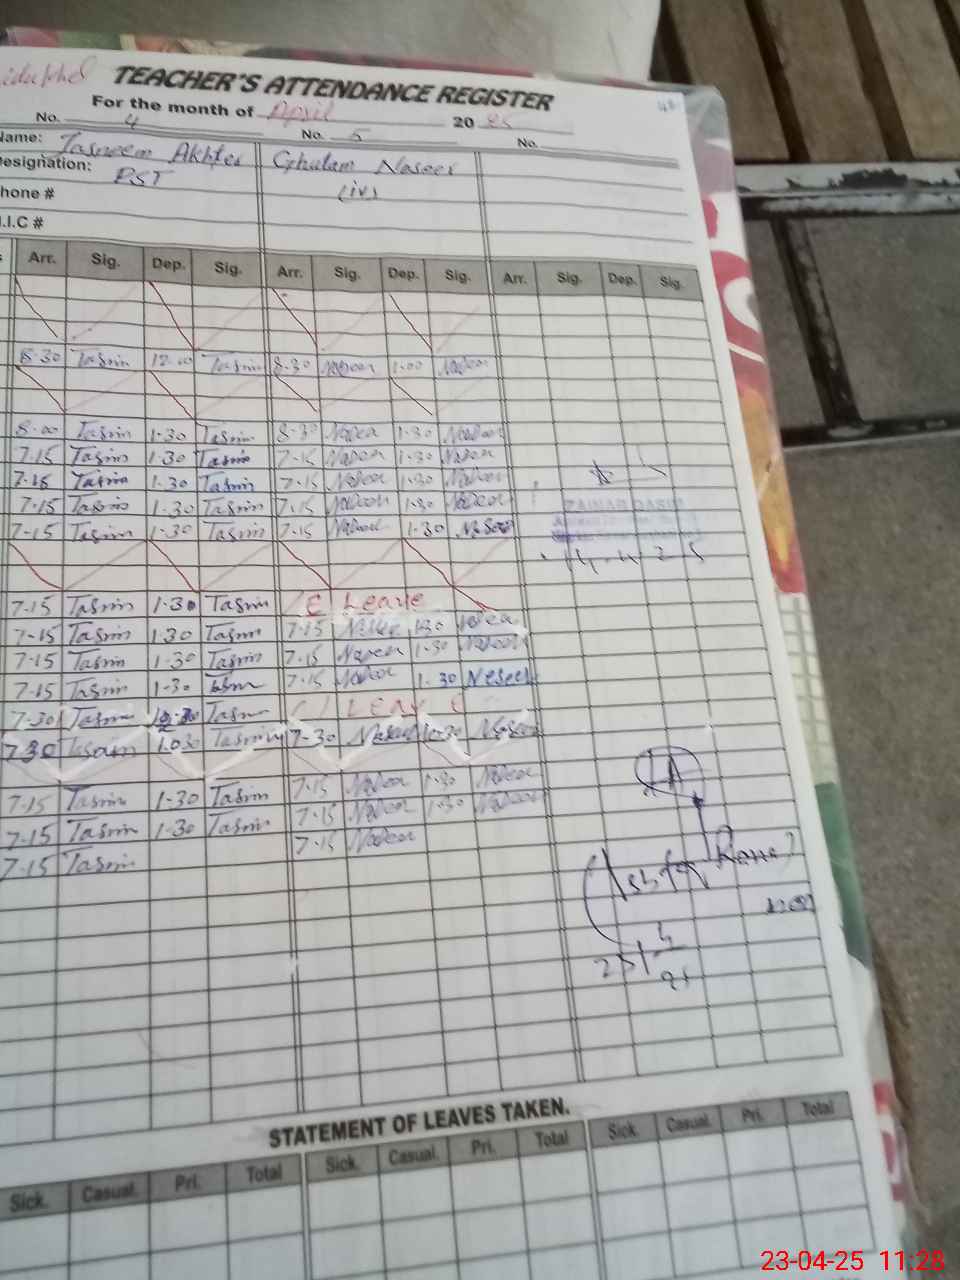 TEACHER'S ATTENDANCE REGISTER
For the month of April 20 25
No. 4 No. 5 No.
Name: Tasneem Akhter Ghulam Naseer
Designation: PST (iv)
Phone #
I.C #
Arr. Sig. Dep. Sig. Arr. Sig. Dep. Sig. Arr. Sig. Dep. Sig.
8-30 Tasmin 12-00 Tasmin 8-30 Naseer 1-00 Naseer
8-00 Tasmin 1-30 Tasmin 8-30 Naseer 1-30 Naseer
7-15 Tasmin 1-30 Tasmin 7-15 Naseer 1-30 Naseer
7-15 Tasmin 1-30 Tasmin 7-15 Naseer 1-30 Naseer
7-15 Tasmin 1-30 Tasmin 7-15 Naseer 1-30 Naseer
7-15 Tasmin 1-30 Tasmin 7-15 Naseer 1-30 Naseer
7-15 Tasmin 1-30 Tasmin Leave
7-15 Tasmin 1-30 Tasmin 7-15 1-30
7-15 Tasmin 1-30 Tasmin 7-15 Naseer 1-30 Naseer
7-15 Tasmin 1-30 Tasmin 7-15 Naseer 1-30 Neseer
7-30 Tasmin Tasmin Leave
7-30 Tasmin Tasmin 7-30 Naseer Naseer
7-15 Tasmin 1-30 Tasmin 7-15 Naseer 1-30 Naseer
7-15 Tasmin 1-30 Tasmin 7-15 Naseer 1-30 Naseer
7-15 Tasmin 7-15 Naseer
STATEMENT OF LEAVES TAKEN.
Sick. Casual. Pri. Total Sick. Casual. Pri. Total Sick. Casual. Pri. Total
23-04-25 11:28